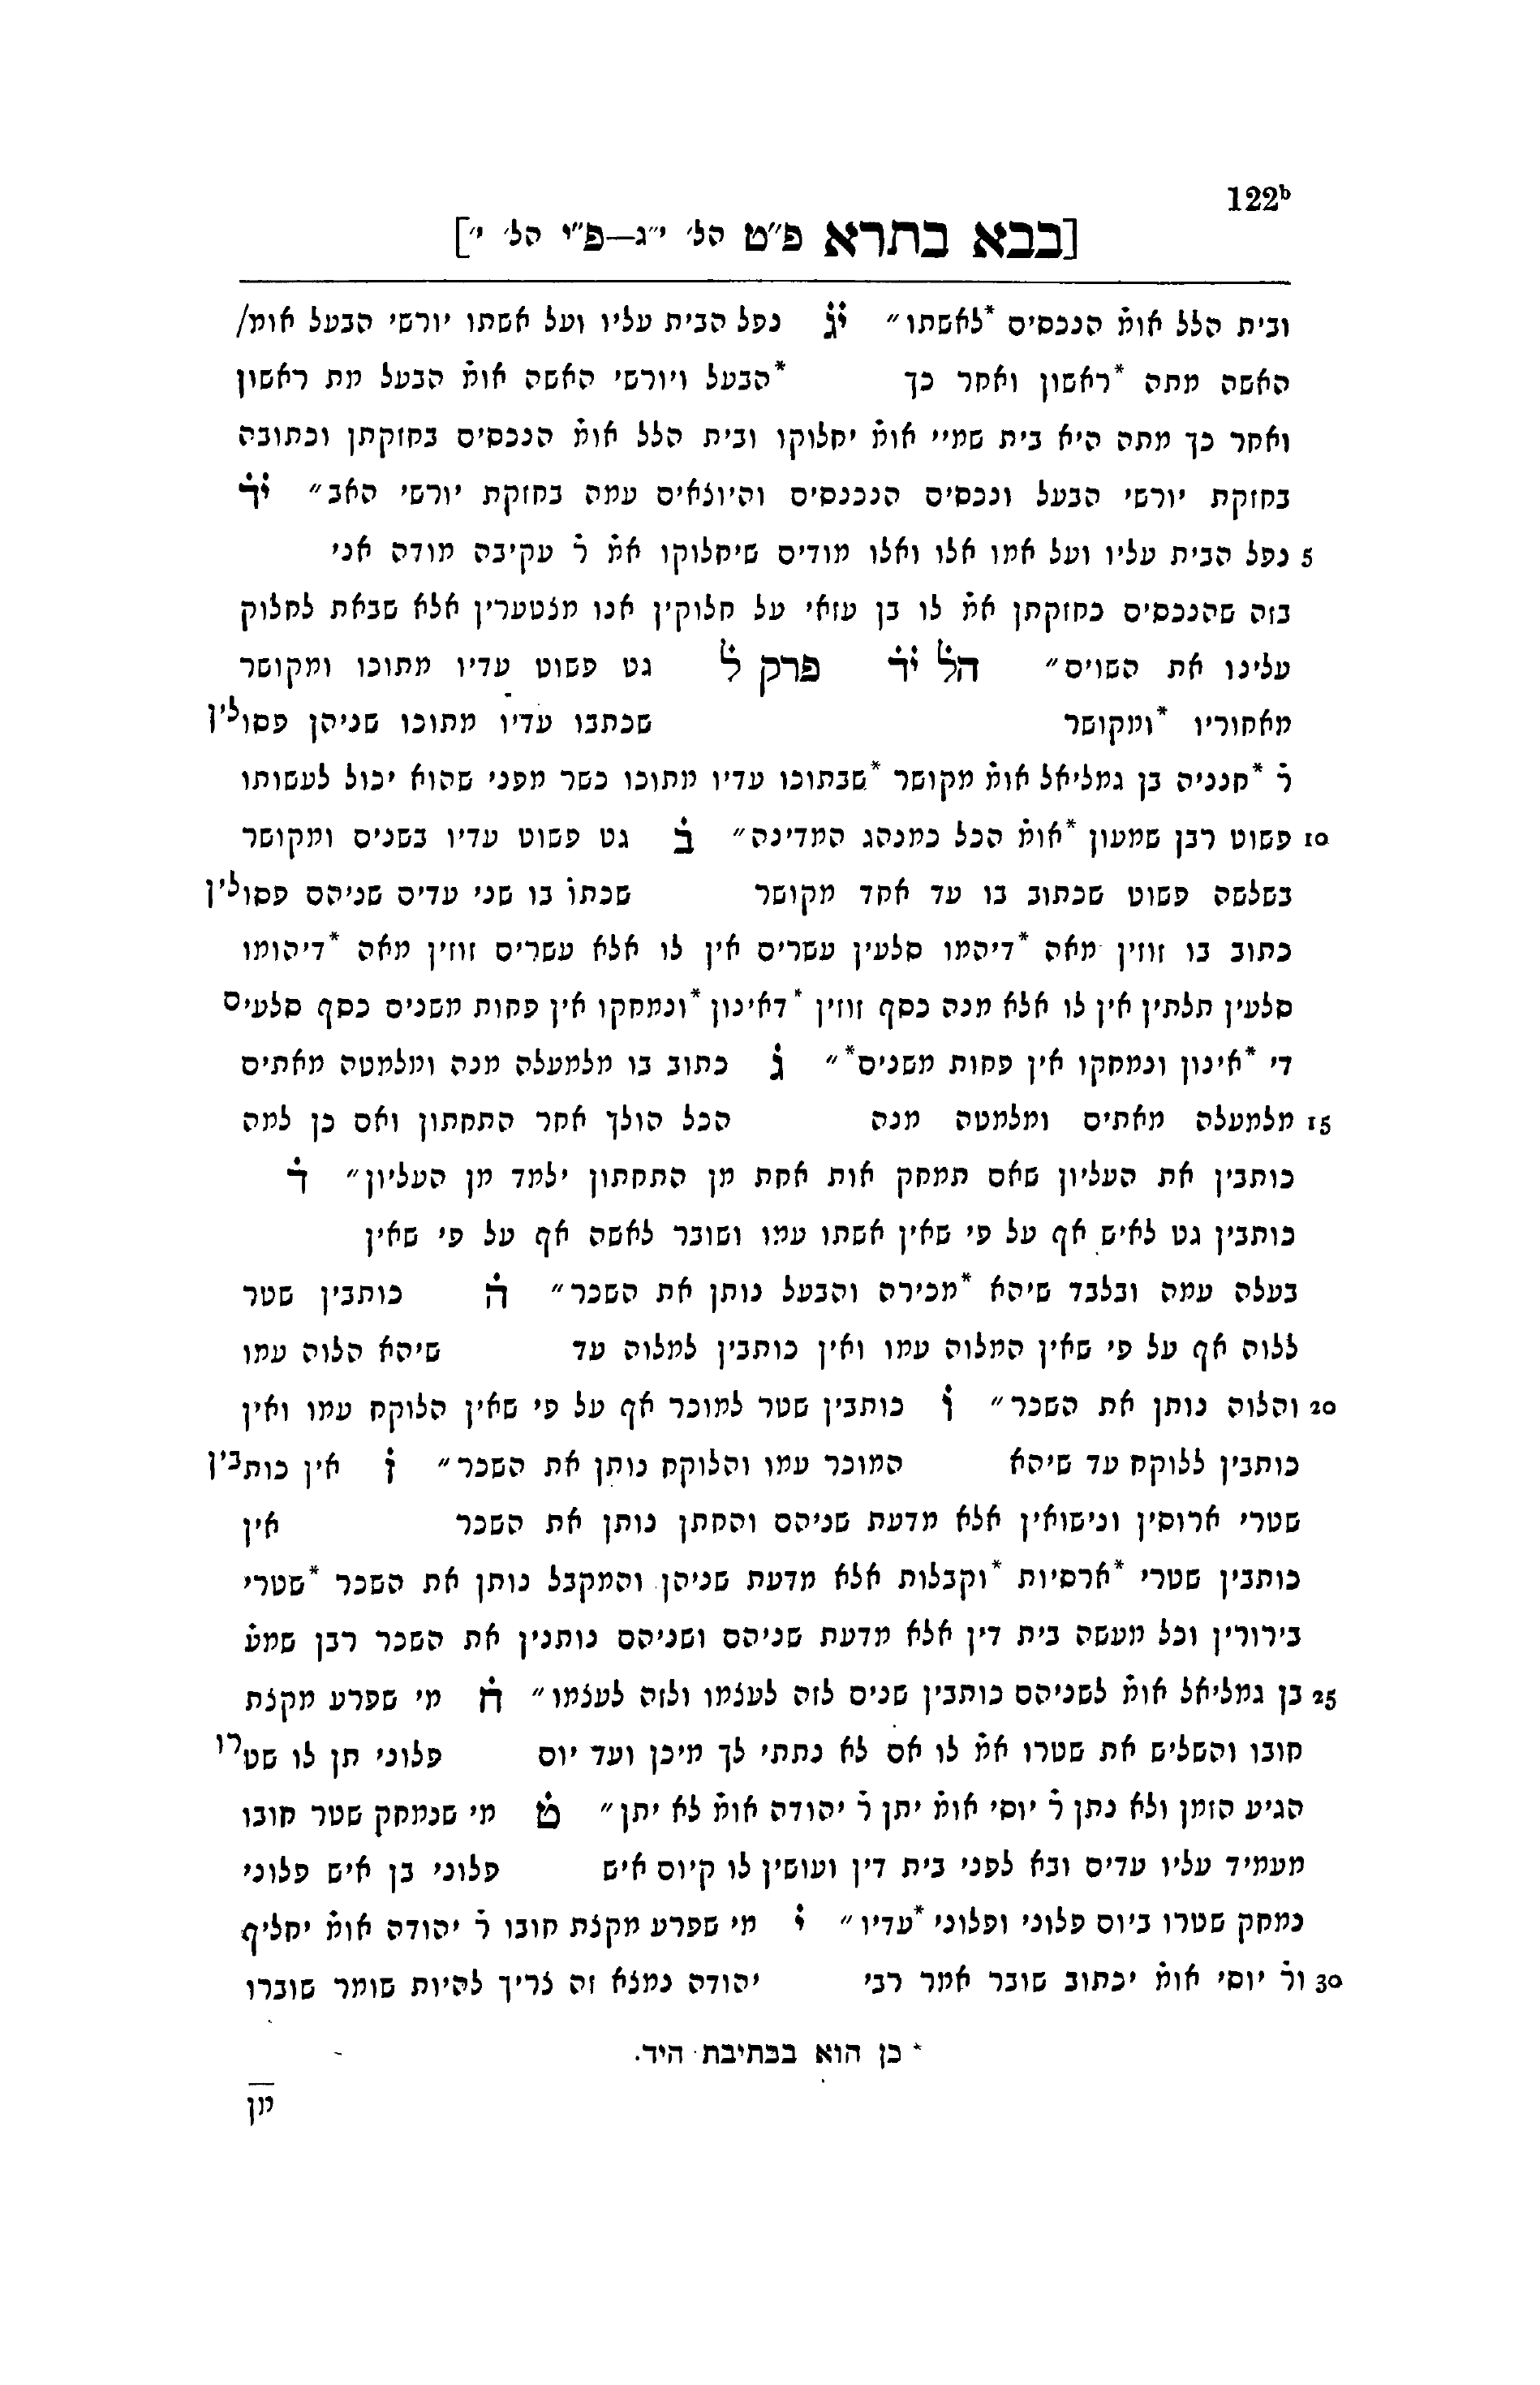 122ᵇ
[בבא בתרא פ״ט הל׳ י״ג—פ״י הל׳ י״]
ובית הלל אומ̇ הנכסים *לאשתו״ יׄגׄ נפל הבית עליו ועל אשתו יורשי הבעל אומ/
האשה מתה *ראשון ואחר כך *הבעל ויורשי האשה אומ̇ הבעל מת ראשון
ואחר כך מתה היא בית שמיי אומ̇ יחלוקו ובית הלל אומ̇ הנכסים בחזקתן וכתובה
בחזקת יורשי הבעל ונכסים הנכנסים והיוצאים עמה בחזקת יורשי האב״ יׄדׄ
5 נפל הבית עליו ועל אמו אלו ואלו מודים שיחלוקו אמ̇ ר̇ עקיבה מודה אני
בזה שהנכסים כחזקתן אמ̇ לו בן עזאי על חלוקין אנו מצטערין אלא שבאת לחלוק
עלינו את השוים״ הל̇ יׄדׄ פרק ל̇ גט פשוט עדיו מתוכו ומקושר
מאחוריו *ומקושר שכתבו עדיו מתוכו שניהן פסולין
ר̇ *חנניה בן גמליאל אומ̇ מקושר *שבתוכו עדיו מתוכו כשר מפני שהוא יכול לעשותו
10 פשוט רבן שמעון *אומ̇ הכל כמנהג המדינה״ בׄ גט פשוט עדיו בשנים ומקושר
בשלשה פשוט שכתוב בו עד אחד מקושר שכתו̇ בו שני עדים שניהם פסולין
כתוב בו זוזין מאה *דיהמו סלעין עשרים אין לו אלא עשרים זוזין מאה *דיהומו
סלעין תלתין אין לו אלא מנה כסף זוזין *דאינון *ונמחקו אין פחות משנים כסף סלעים
די *אינון ונמחקו אין פחות משנים*״ גׄ כתוב בו מלמעלה מנה ומלמטה מאתים
15 מלמעלה מאתים ומלמטה מנה הכל הולך אחר התחתון ואם כן למה
כותבין את העליון שאם תמחק אות אחת מן התחתון ילמד מן העליון״ דׄ
כותבין גט לאיש אף על פי שאין אשתו עמו ושובר לאשה אף על פי שאין
בעלה עמה ובלבד שיהא *מכירה והבעל נותן את השכר״ הׄ כותבין שטר
ללוה אף על פי שאין המלוה עמו ואין כותבין למלוה עד שיהא הלוה עמו
20 והלוה נותן את השכר״ וׄ כותבין שטר למוכר אף על פי שאין הלוקח עמו ואין
כותבין ללוקח עד שיהא המוכר עמו והלוקח נותן את השכר״ זׄ אין כותבין
שטרי ארוסין ונישואין אלא מדעת שניהם והחתן נותן את השכר אין
כותבין שטרי *ארסיות *וקבלות אלא מדעת שניהן והמקבל נותן את השכר *שטרי
בירורין וכל מעשה בית דין אלא מדעת שניהם ושניהם נותנין את השכר רבן שמע̇
25 בן גמליאל אומ̇ לשניהם כותבין שנים לזה לעצמו ולזה לעצמו״ חׄ מי שפרע מקצת
חובו והשליש את שטרו אמ̇ לו אם לא נתתי לך מיכן ועד יום פלוני תן לו שטרו
הגיע הזמן ולא נתן ר̇ יוסי אומ̇ יתן ר̇ יהודה אומ̇ לא יתן״ טׄ מי שנמחק שטר חובו
מעמיד עליו עדים ובא לפני בית דין ועושין לו קיום איש פלוני בן איש פלוני
נמחק שטרו ביום פלוני ופלוני *עדיו״ יׄ מי שפרע מקצת חובו ר̇ יהודה אומ̇ יחליף
30 ור̇ יוסי אומ̇ יכתוב שובר אמר רבי יהודה נמצא זה צריך להיות שומר שוברו
* כן הוא בכתיבת היד.
מן